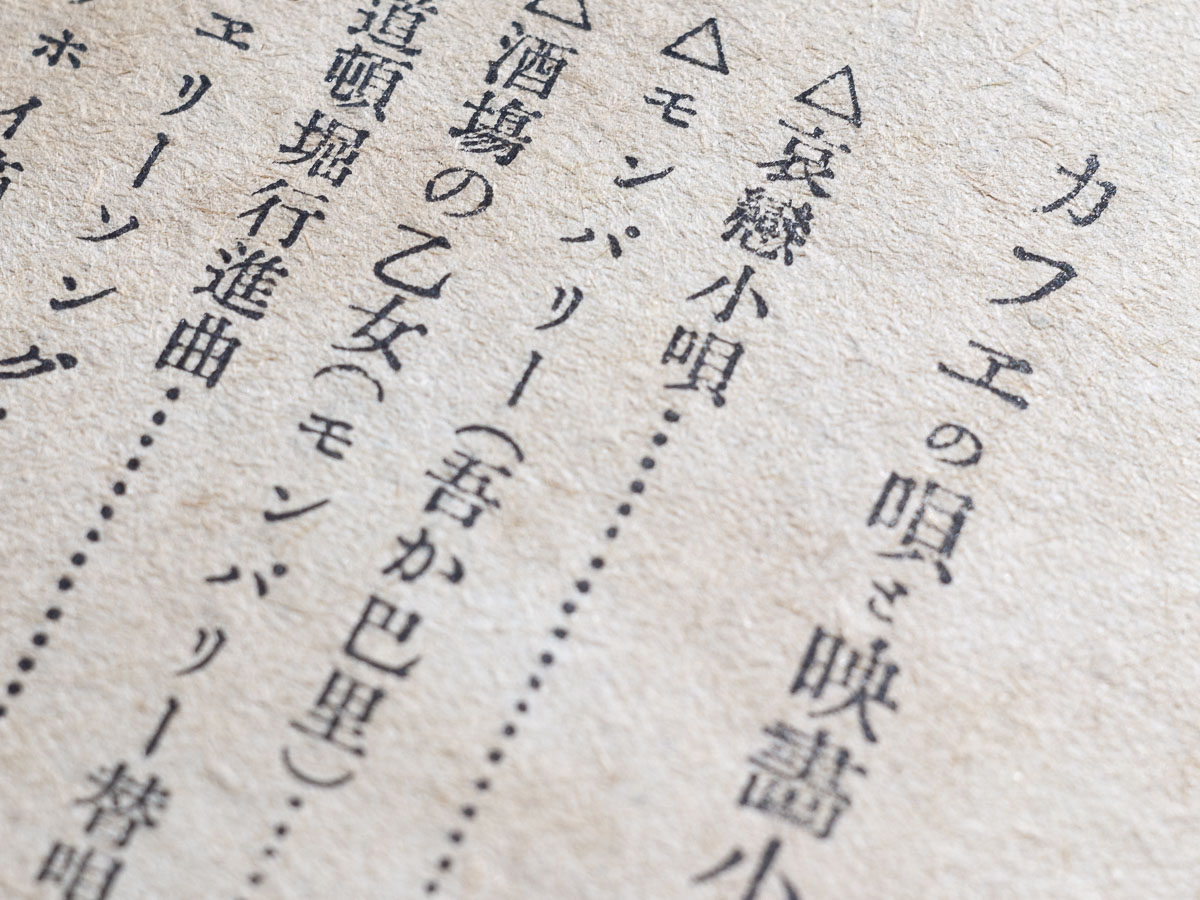 カフヱの唄と映畵小
△哀戀小唄…………
△モンパリー（吾か巴里）……
△酒場の乙女（モンパリー替唄
道頓堀行進曲…………
ヱリーソング
ホイ